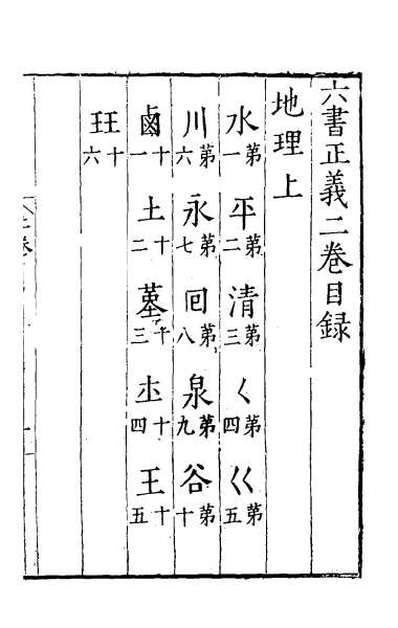 六書正義二卷目録
地理上
水第一 平第二 清第三 𡿨第四 巜第五
川第六 永第七 囘第八 泉第九 谷第十
鹵十一 土十二 十三 十四 王十五
玨十六